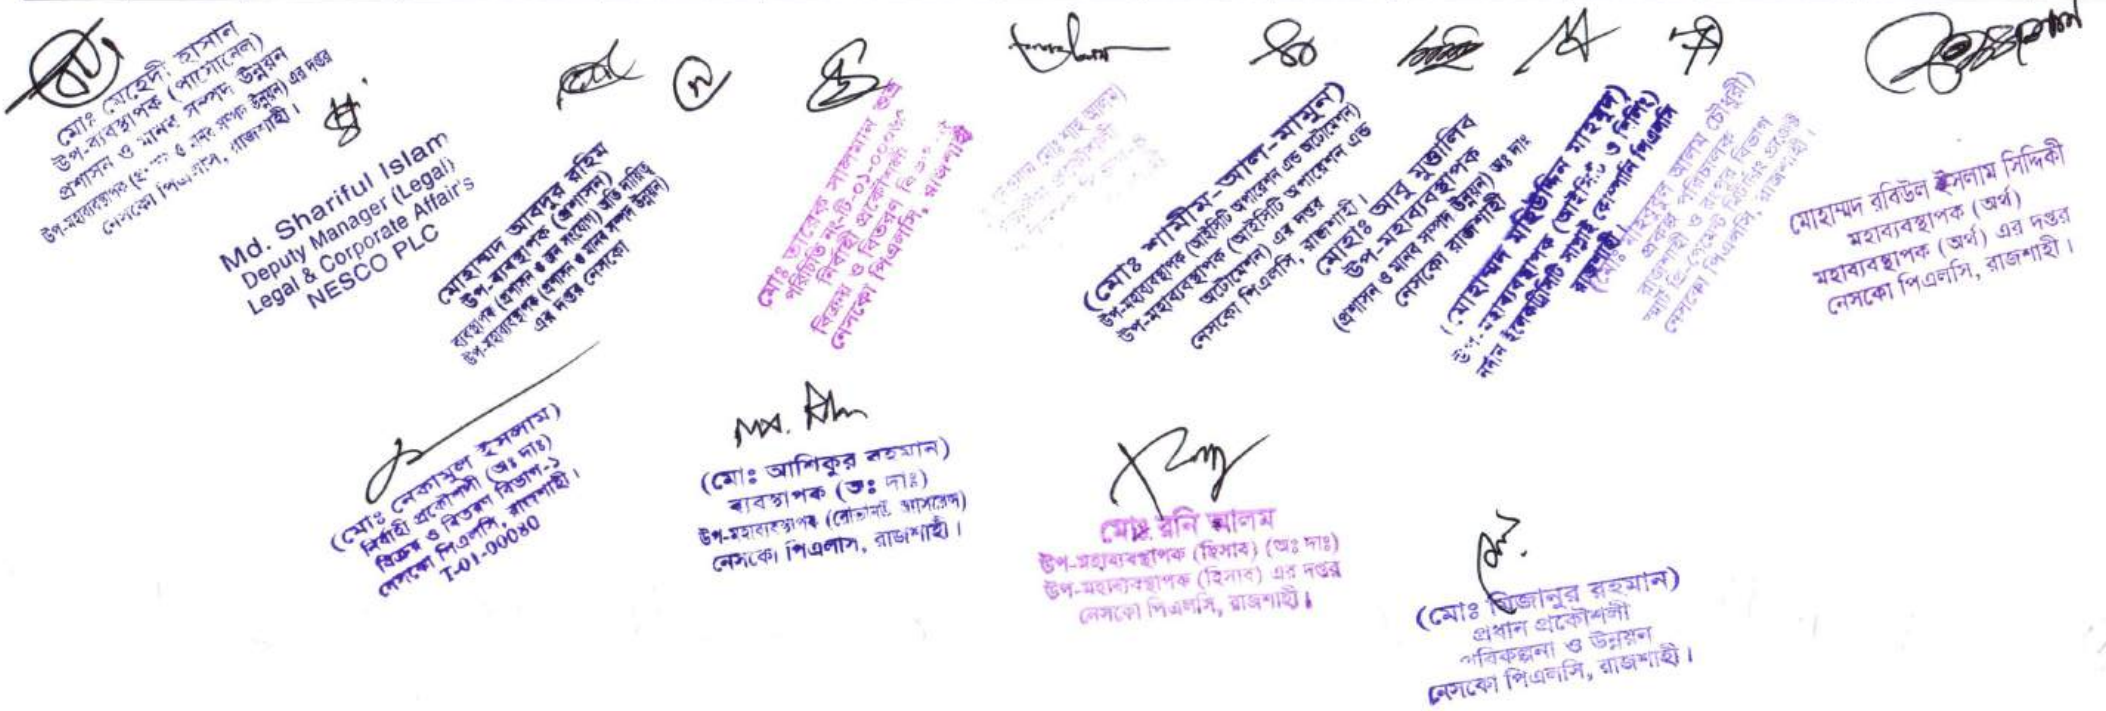 মোঃ মেহেদী হাসান
উপ-ব্যবস্থাপক (পার্সোনেল)
প্রশাসন ও মানব সম্পদ উন্নয়ন
উপ-মহাব্যবস্থাপক ও মানব সম্পদ উন্নয়ন) এর দপ্তর
নেসকো পিএলসি, রাজশাহী।
Md. Shariful Islam
Deputy Manager (Legal)
Legal & Corporate Affair's
NESCO PLC
মোহাম্মদ আবদুর রহিম
উপ-ব্যবস্থাপক (প্রশাসন)
ব্যবস্থাপক (প্রশাসন ও জন সংযোগ) অতি দায়িত্ব
উপ-মহাব্যবস্থাপক (প্রশাসন ও মানব সম্পদ উন্নয়ন)
এর দপ্তর নেসকো
মোঃ তারেক সালমান
পরিচিতি নং-টি ০১-০০
নির্বাহী প্রকৌশলী
বিক্রয় ও বিতরণ বি
নেসকো পিএলসি, রাজশাহী
মোঃ শাহ আলম)
(মোঃ শামীম-আল-মামুন)
উপ-মহাব্যবস্থাপক (আইসিটি অপারেশন এন্ড অটোমেশন)
উপ-মহাব্যবস্থাপক (আইসিটি অপারেশন এন্ড
অটোমেশন) এর দপ্তর
নেসকো পিএলসি, রাজশাহী।
মোহাঃ আবু মুত্তালিব
উপ-মহাব্যবস্থাপক
(প্রশাসন ও মানব সম্পদ উন্নয়ন) অঃ দাঃ
নেসকো রাজশাহী
(মোহাম্মদ মহিউদ্দিন মাহমুদ)
উপ-মহাব্যবস্থাপক (আইসিটি ও বিলিং)
নর্দান ইলেকট্রিসিটি সাপ্লাই কোম্পানি পিএলসি
রাজশাহী।
(মোঃ মাহবুবুল আলম চৌধুরী)
প্রকল্প পরিচালক
রাজশাহী ও রংপুর বিভাগ
স্মার্ট প্রি-পেমেন্ট মিটারিং প্রকল্প
নেসকো পিএলসি, রাজশাহী।
মোহাম্মদ রবিউল ইসলাম সিদ্দিকী
মহাব্যবস্থাপক (অর্থ)
মহাব্যবস্থাপক (অর্থ) এর দপ্তর
নেসকো পিএলসি, রাজশাহী।
(মোঃ নেকামুল ইসলাম)
নির্বাহী প্রকৌশলী (অঃ দাঃ)
বিক্রয় ও বিতরণ বিভাগ-১
নেসকো পিএলসি, রাজশাহী।
T-01-00080
(মোঃ আশিকুর রহমান)
ব্যবস্থাপক (অঃ দাঃ)
উপ-মহাব্যবস্থাপক
নেসকো পিএলসি, রাজশাহী।
মোঃ রনি আলম
উপ-মহাব্যবস্থাপক (হিসাব) (অঃ দাঃ)
উপ-মহাব্যবস্থাপক (হিসাব) এর দপ্তর
নেসকো পিএলসি, রাজশাহী।
(মোঃ মিজানুর রহমান)
প্রধান প্রকৌশলী
পরিকল্পনা ও উন্নয়ন
নেসকো পিএলসি, রাজশাহী।